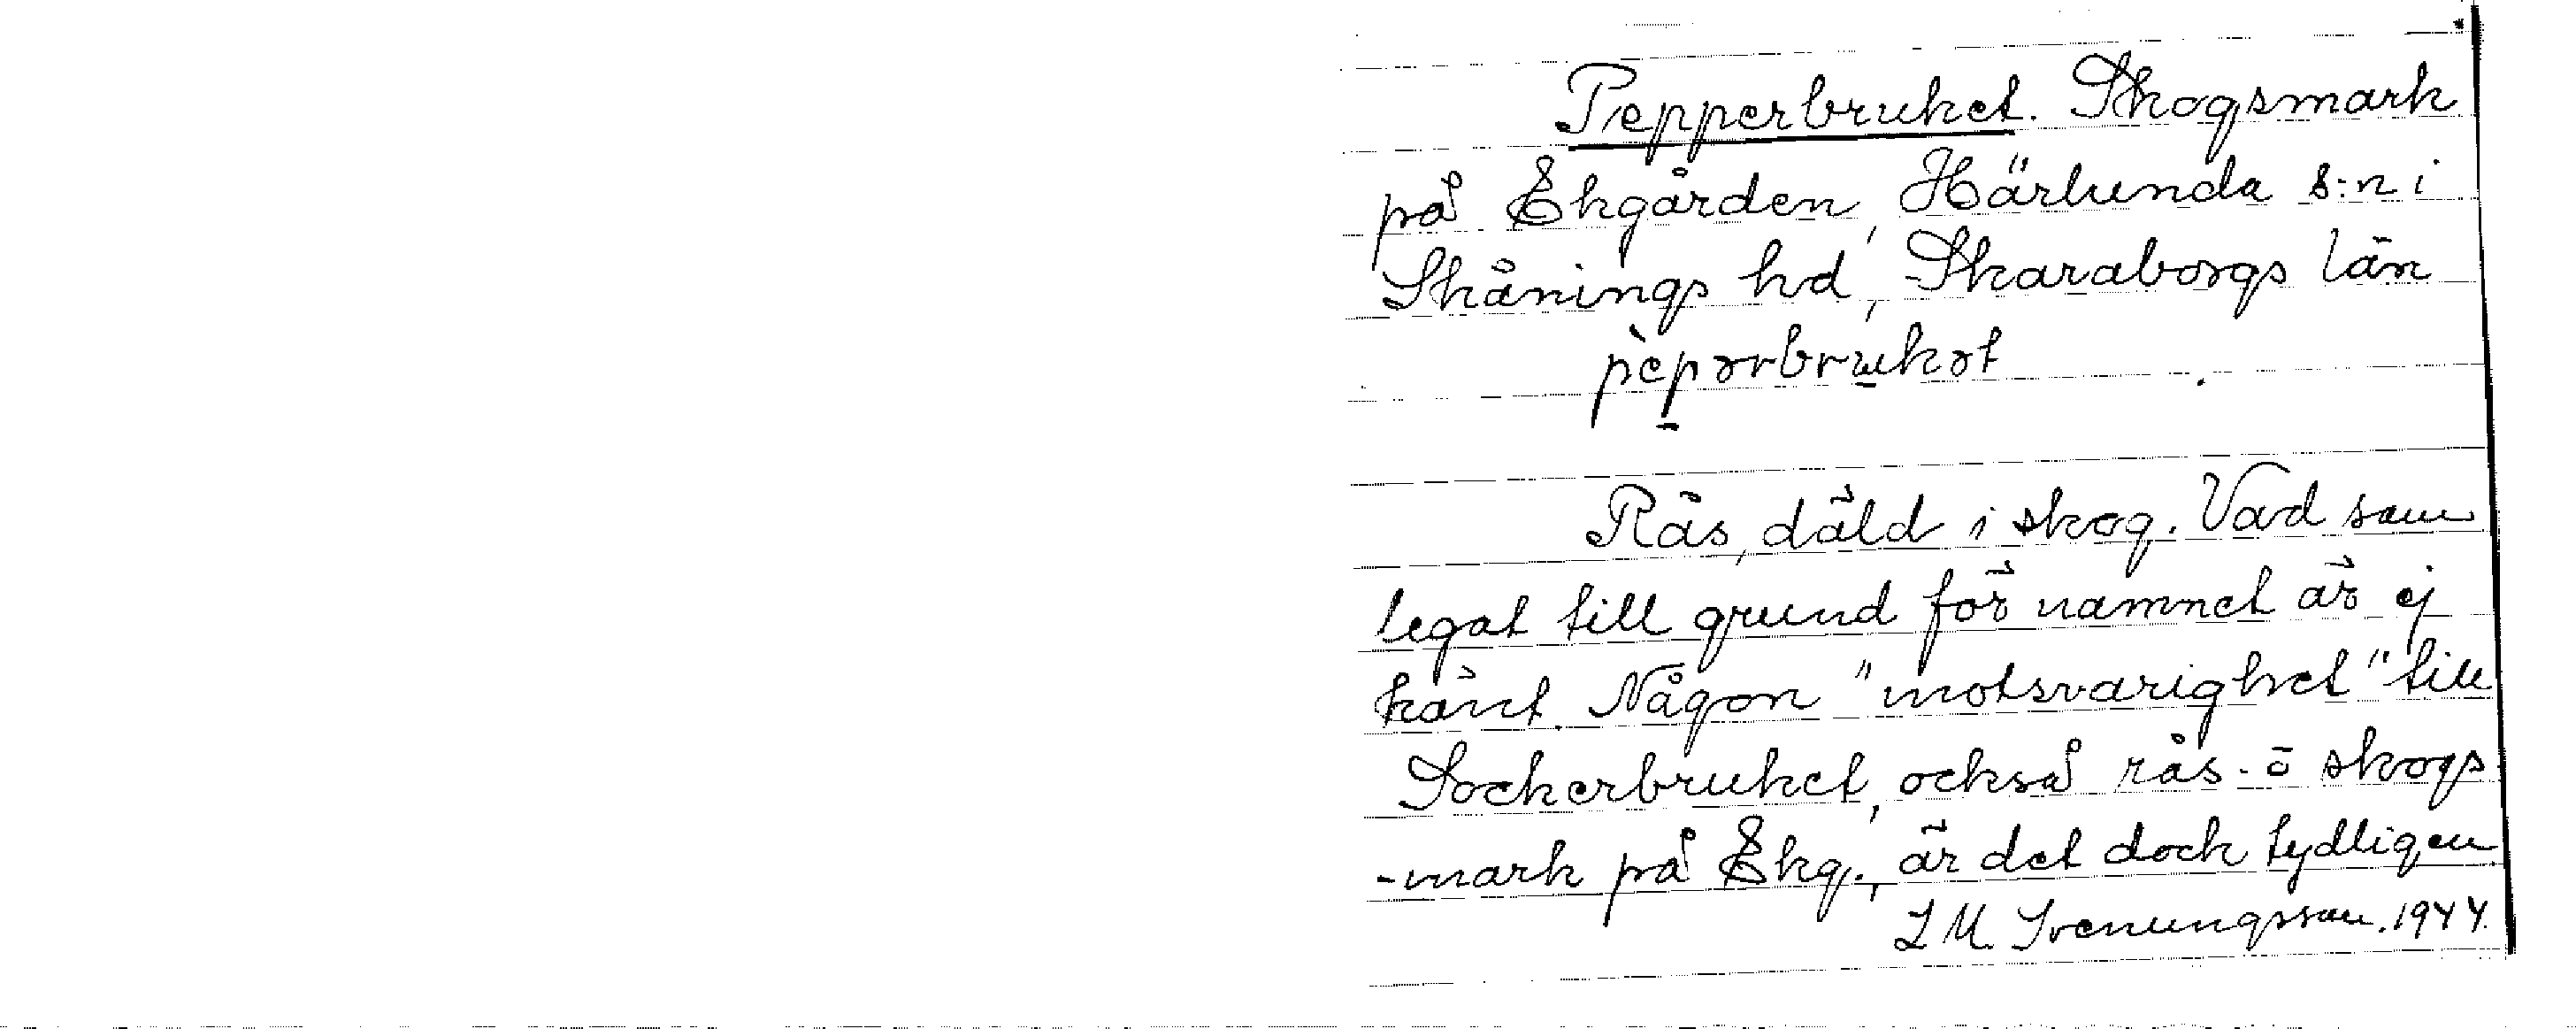 Pepperbruket. Skogsmark
på Ekgården, Härlunda s:n i
Skånings hd, Skaraborgs län
pèpərbrukət
Rås, däld i skog. Vad som
legat till grund för namnet är ej
känt. Någon "motsvarighet" till
Sockerbruket, också rås- o skogs
-mark på Ekg., är det dock tydligen
I M. Svenungsson. 1944.